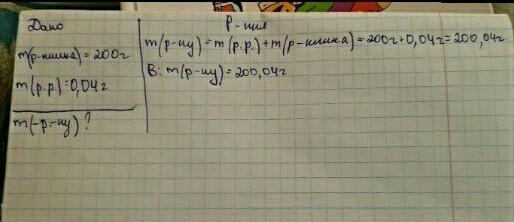 Дано
m(р-ника) = 200г
m(р.р.) = 0,04г
m(-р-ну) ?
Р-ння
m(р-ну) = m(р.р.) + m(р-ника) = 200г + 0,04г = 200,04г
В: m(р-ну) = 200,04г